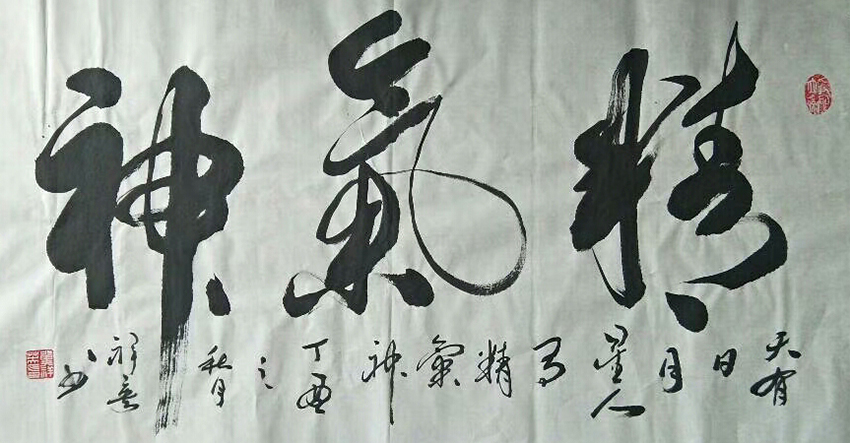 精氣神
天有日月星人有精氣神丁酉之秋月祥意书